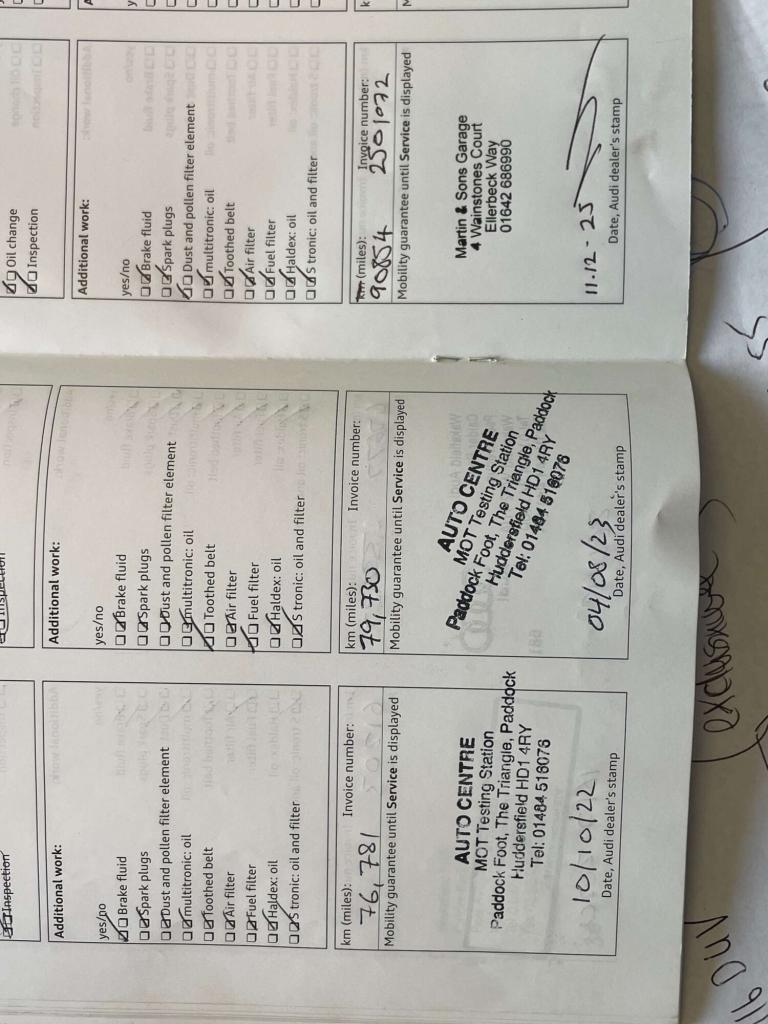 Inspection
Additional work:
yes/no
Brake fluid
Spark plugs
Dust and pollen filter element
multitronic: oil
Toothed belt
Air filter
Fuel filter
Haldex: oil
S tronic: oil and filter
km (miles): Invoice number:
76,781
Mobility guarantee until Service is displayed
AUTO CENTRE
MOT Testing Station
Paddock Foot, The Triangle, Paddock
Huddersfield HD1 4RY
Tel: 01484 516076
10/10/22
Date, Audi dealer's stamp
Inspection
Additional work:
yes/no
Brake fluid
Spark plugs
Dust and pollen filter element
multitronic: oil
Toothed belt
Air filter
Fuel filter
Haldex: oil
S tronic: oil and filter
km (miles): Invoice number:
79,730
Mobility guarantee until Service is displayed
AUTO CENTRE
MOT Testing Station
Paddock Foot, The Triangle, Paddock
Huddersfield HD1 4RY
Tel: 01484 516076
04/08/23
Date, Audi dealer's stamp
Oil change
Inspection
Additional work:
yes/no
Brake fluid
Spark plugs
Dust and pollen filter element
multitronic: oil
Toothed belt
Air filter
Fuel filter
Haldex: oil
S tronic: oil and filter
km (miles): Invoice number:
90854 2501072
Mobility guarantee until Service is displayed
Martin & Sons Garage
4 Wainstones Court
Ellerbeck Way
01642 686990
11-12-25
Date, Audi dealer's stamp